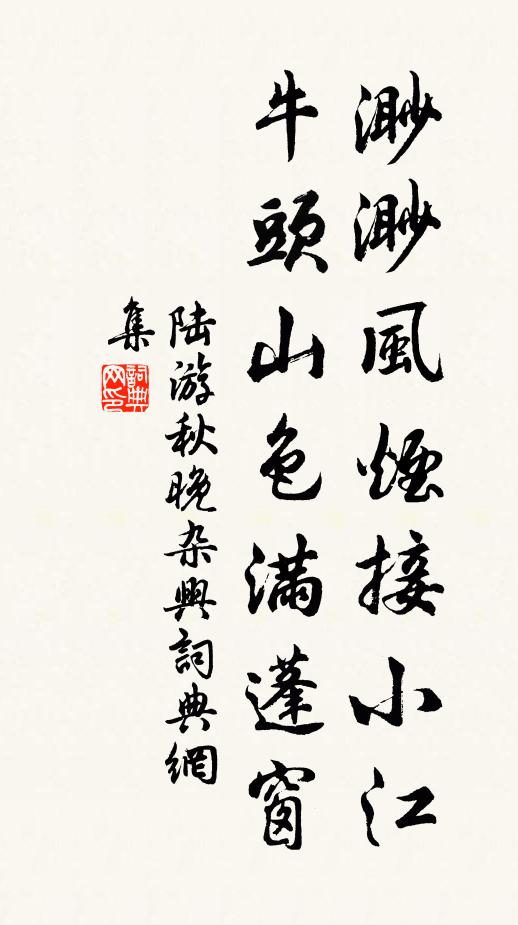 渺渺風煙接小江
牛頭山色滿蓬窗
陆游秋晚杂興詞典網
集
詞典
网印